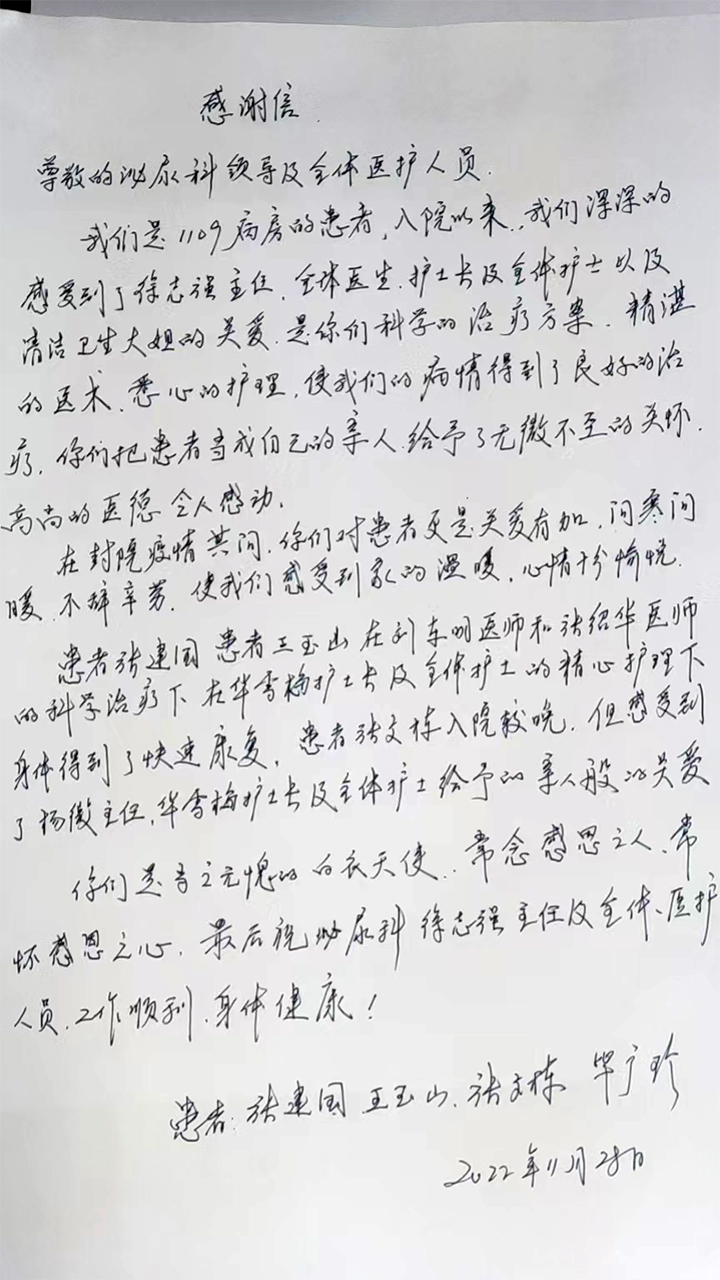 感谢信.
尊敬的泌尿科领导及全体医护人员.
我们是1109病房的患者,入院以来,.我们深深的
感受到了徐志强主任.全体医生.护士长及全体护士以及
清洁卫生大姐的关爱.是你们科学的治疗方案.精湛
的医术.悉心的护理,使我们的病情得到了良好的治
疗.你们把患者当成自己的亲人.给予了无微不至的关怀.
高尚的医德令人感动.
在封院疫情其间.你们对患者更是关爱有加.问寒问
暖.不辞辛劳.使我们感受到家的温暖.心情十分愉悦.
患者张建国 患者王玉山在刘东明医师和张绍华医师
的科学治疗下在华雪梅护士长及全体护士的精心护理下
身体得到了快速康复.患者张文栋入院较晚.但感受到
了杨微主任,华雪梅护士长及全体护士给予的亲人般的关爱
你们是当之无愧的白衣天使..常念感恩之人、常
怀感恩之心.最后祝泌尿科徐志强主任及全体、医护
人员.工作顺利.身体健康!
患者:张建国 王玉山.张文栋 毕广珍
2022年11月28日